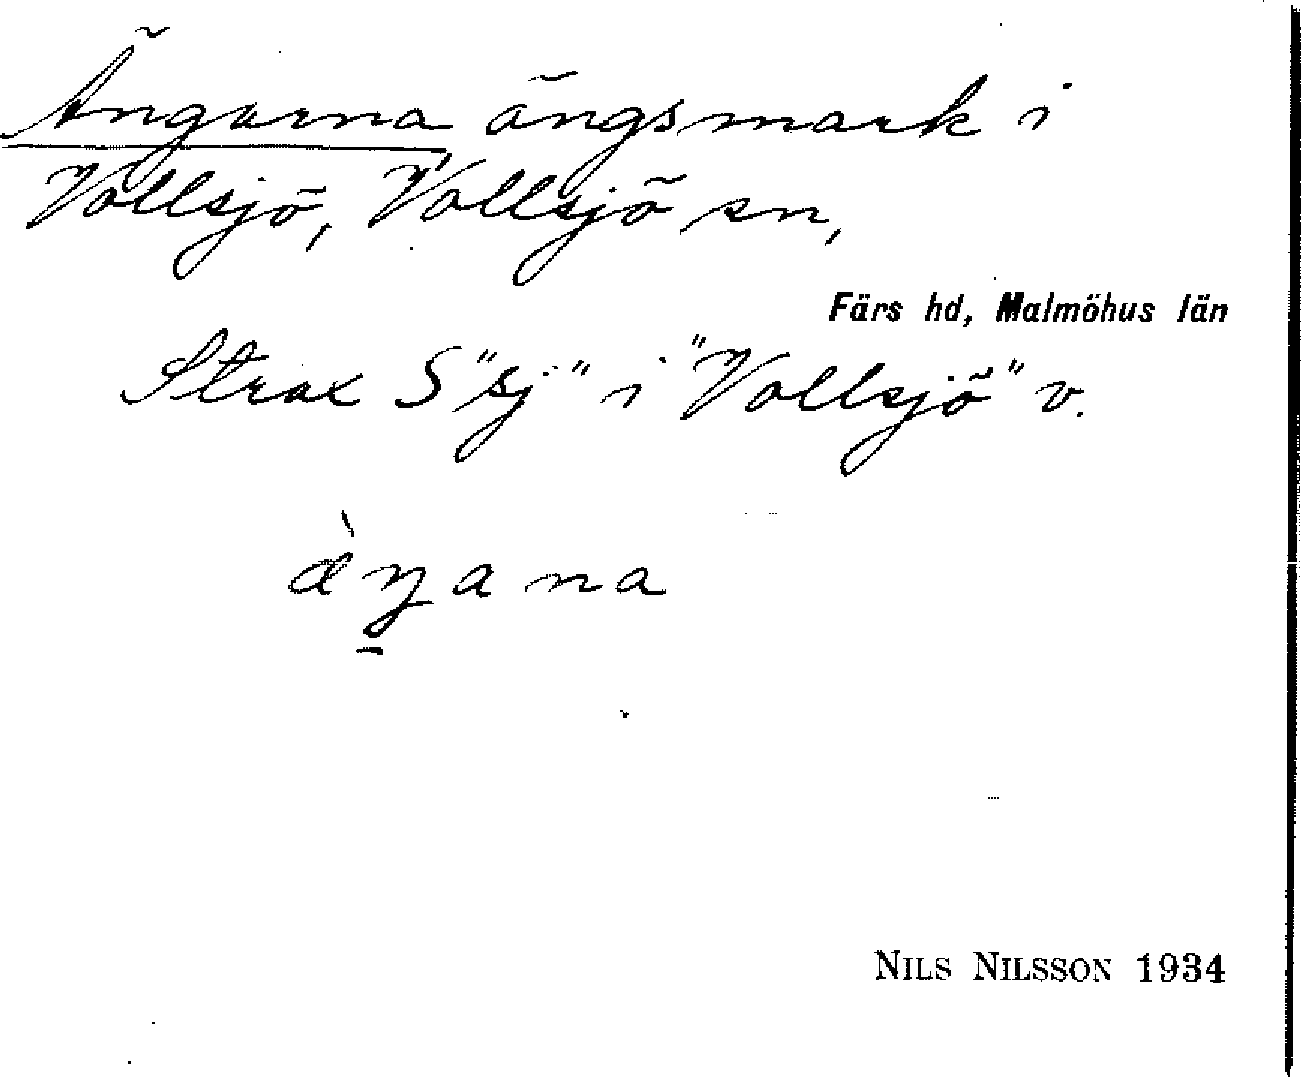 Ängarna ängsmark i
Vollsjö, Vollsjö sn,
Färs hd, Malmöhus län
Strax S "sj" i "Vollsjö" v.
æ̀ŋ̠ana
NILS NILSSON 1934